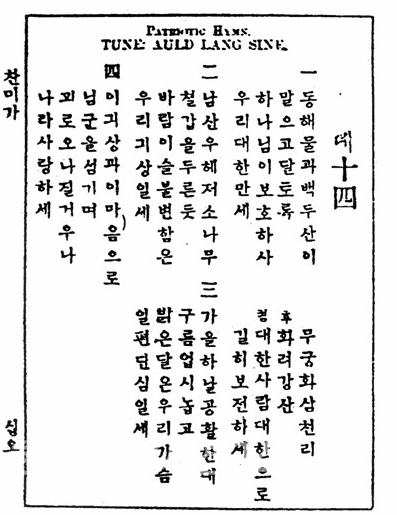 PATRIOTIC HYMNS.
TUNE: AULD LANG SINE.
뎨十四
一 동해물과백두산이
말으고달토록
하나님이보호하사
우리대한만세
무궁화삼천리
後 화려강산
렴 대한사람대한으로
길히보전하세
二 남산우헤저소나무
철갑을두른듯
바람이슬불변함은
우리긔상일세
三 가을하날공활한대
구름업시놉고
밝은달은우리가슴
일편단심일세
四 이긔상과이마음으로
님군을섬기며
괴로오나질거우나
나라사랑하세
찬미가
십오